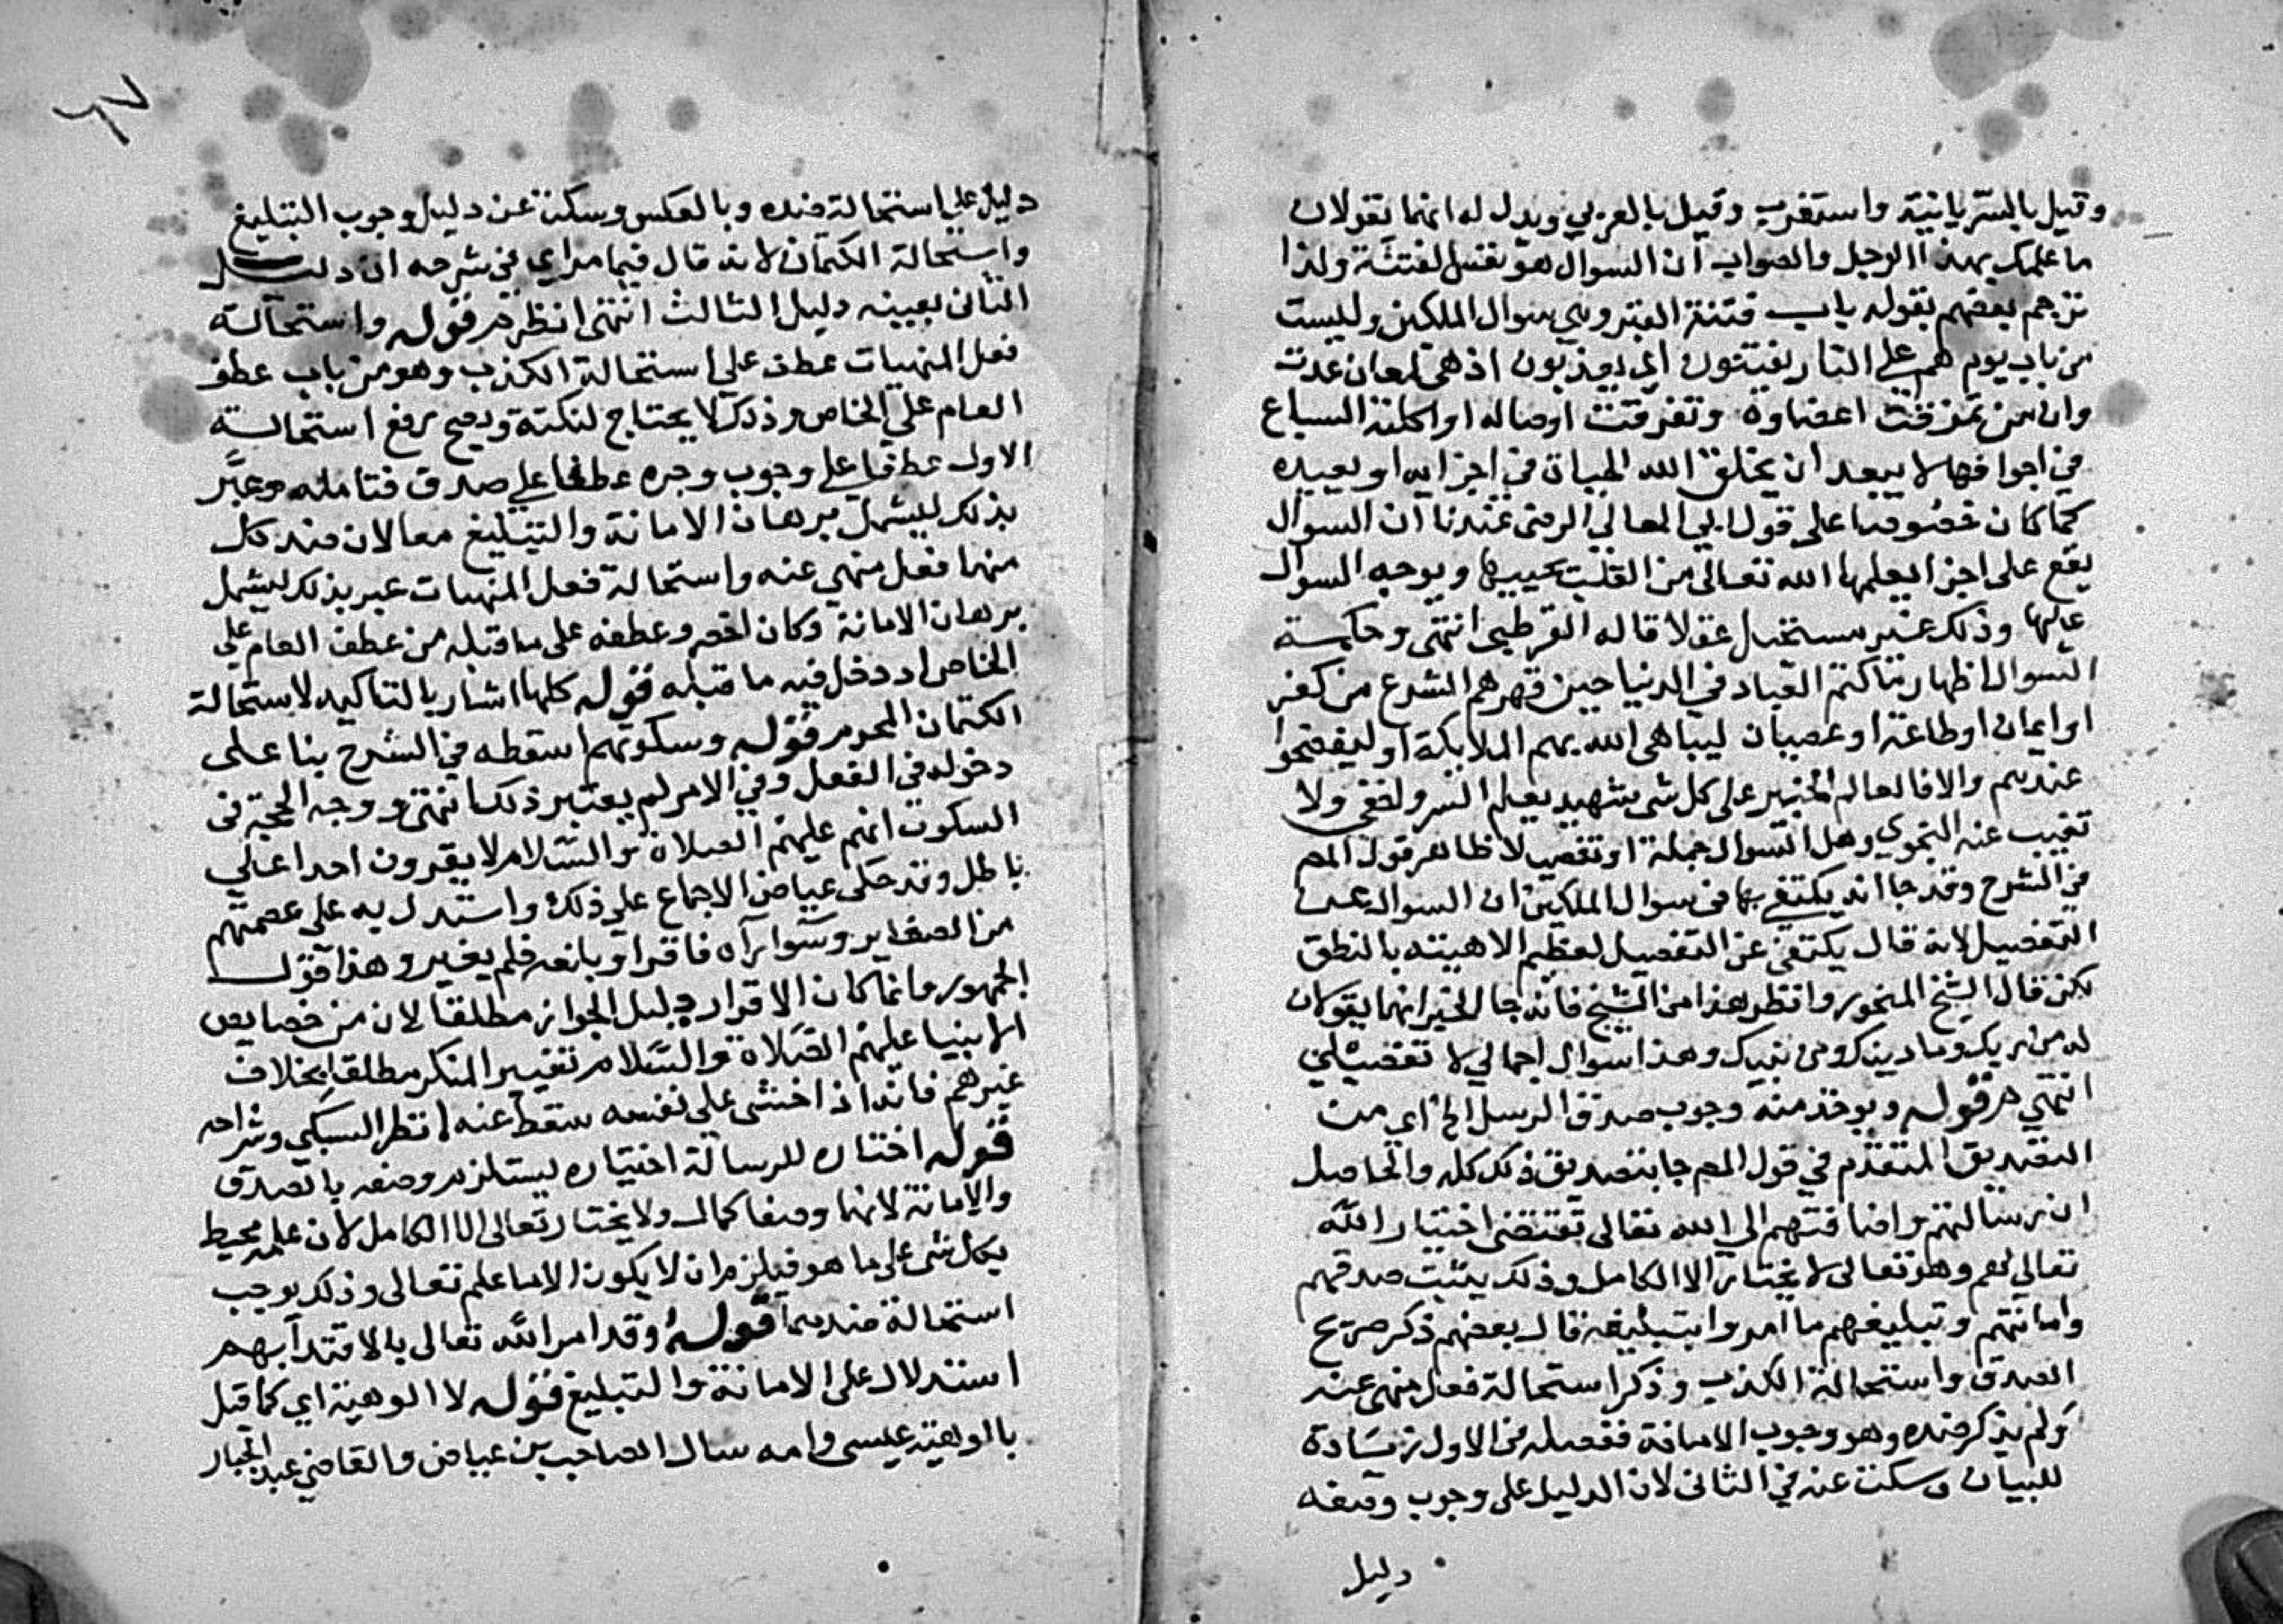 وقيل بالسريانية واستغرب وقيل بالعربي ويدل له انهما يقولان
ما علمك بهذا الرجل والصواب ان السوال هو نفس الفتنة ولذا
ترجم بعضهم بقوله باب فتنة القبر وهي سوال الملكين وليست
من باب يوم هم على النار يفتنون اي يعذبون اذ هي لمعان عدت
وان من تمزقت اعضاوه وتفرقت اوصاله او اكلته السباع
في اجوافها لا يبعد ان يخلق الله الحياة في اجزايه او يعيده
كما كان خصوصا على قول ابي المعالي المرضى عندنا ان السوال
يقع على اجزا يعلمها الله تعالى من القلب يحييها ويوجه السوال
عليها وذلك غير مستحيل عقلا قاله القرطبي انتهى وحكمة
السوال اظهار ما كتم العباد في الدنيا حين قهرهم الشرع من كفر
او ايمان او طاعة او عصيان ليباهي الله بهم الملايكة او ليفضحوا
عندهم والا فالعالم الخبير على كل شي شهيد يعلم السر واخفى ولا
تغيب عنه النجوي وهل السوال جملة او تفصيلا ظاهر قول المص
في الشرح وقد جا انه يكتفي بها في سوال الملكين ان السوال عن
التفصيل لانه قال يكتفى عن التفصيل لعظيم الاهيته بالنطق
لكن قال الشيخ المنجور وانظر هذا من الشيخ فانه جا الخبر انهما يقولان
له من ربك وما دينك ومن نبيك وهذا سوال اجمالي لا تفصيلي
انتهي قوله ويوخذ منه وجوب صدق الرسل الخ اي من
التصديق المتقدم في قول المص جا بتصديق ذلك كله والحاصل
ان رسالتهم واضافتهم الي الله تعالى تقتضى اختيار الله
تعالى لهم وهو تعالى لا يختار الا الكامل وذلك يثبت صدقهم
وامانتهم وتبليغهم ما امروا بتبليغه قال بعضهم ذكر صريح
الصدق واستحالة الكذب وذكر استحالة فعل منهى عنه
ولم يذكر ضده وهو وجوب الامانة ففصله في الاول زيادة
للبيان وسكت عنه في الثاني لان الدليل على وجوب وصفه
دليل
٦٧
دليل علي استحالة ضده وبالعكس وسكت عن دليل وجوب التبليغ
واستحالة الكتمان لانه قال فيما مر اي في شرحه ان دليل
الثاني بعينه دليل الثالث انتهى انظره قوله واستحالة
فعل المنهيات عطف على استحالة الكذب وهو من باب عطف
العام على الخاص وذلك لا يحتاج لنكتة ويصح رفع استحالة
الاول عطفا على وجوب وجره عطفا علي صدق فتامله وعبَّر
بذلك ليشمل برهان الامانة والتبليغ معا لان ضد كل
منهما فعل منهي عنه واستحالة فعل المنهيات عبر بذلك ليشمل
برهان الامانة وكان اخصر وعطفه على ما قبله من عطف العام على
الخاص اد دخل فيه ما قبله قوله كلها اشار بالتاكيد لاستحالة
الكتمان المحرم قوله وسكوتهم اسقطه في الشرح بنا على
دخوله في الفعل وفي الامر لم يعتبر ذلك انتهى ووجه الحجة في
السكوت انهم عليهم الصلاة والسلام لا يقرون احدا على
باطل وقد حكى عياض الاجماع على ذلك واستدل به على عصمتهم
من الصغاير وسوا رآه فاقره او بلغه فلم يغيره وهذا قول
الجمهور وانما كان الاقرار دليل الجواز مطلقا لان من خصايص
الانبيا عليهم الصلاة والسلام تغيير المنكر مطلقا بخلاف
غيرهم فانه اذا خشى على نفسه سقط عنه انظر السبكي وشراحه
قوله اختاره للرسالة اختياره يستلزم وصفه بالصدق
والامانة لانهما وصفا كمال ولا يختار تعالى الا الكامل لان علمه محيط
بكل شى على ما هو فيلزم ان لا يكون الا ما علم تعالى وذلك يوجب
استحالة ضديهما قوله وقد امر الله تعالى بالاقتدا بهم
استدلال على الامانة والتبليغ قوله لا الوهية اي كما قيل
بالوهية عيسى وامه سال الصاحب بن عياض والقاضي عبد الجبار